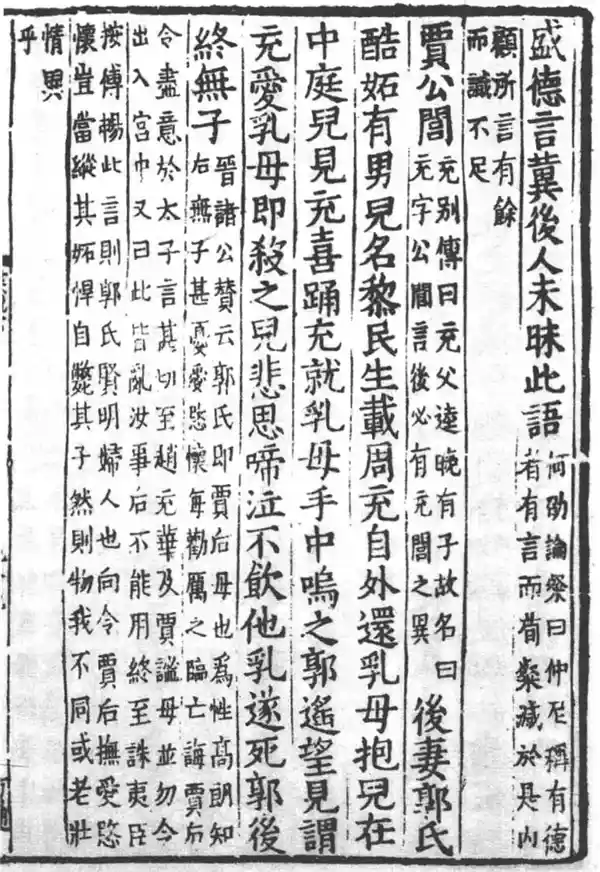 盛德言冀後人未昧此語何劭論粲曰仲尼稱有德
者有言而荀粲減於是內
顧所言有餘
而識不足
賈公閭充別傳曰充父逵晚有子故名曰
充字公閭言後必有充閭之異後妻郭氏
酷妬有男兒名黎民生載周充自外還乳母抱兒在
中庭兒見充喜踊充就乳母手中嗚之郭遙望見謂
充愛乳母即殺之兒悲思啼泣不飲他乳遂死郭後
終無子晉諸公贊云郭氏即賈后母也爲性高朗知
右無子甚憂愛愍懷每勸厲之臨亡誨賈后
令盡意於太子言甚切至趙充華及賈謐母並勿令
出入宮中又曰此皆亂汝事后不能用終至誅夷臣
按傅暢此言則郭氏賢明婦人也向令賈后撫愛愍
懷豈當縱其妬悍自斃其子然則物我不同或老壯
情異
乎